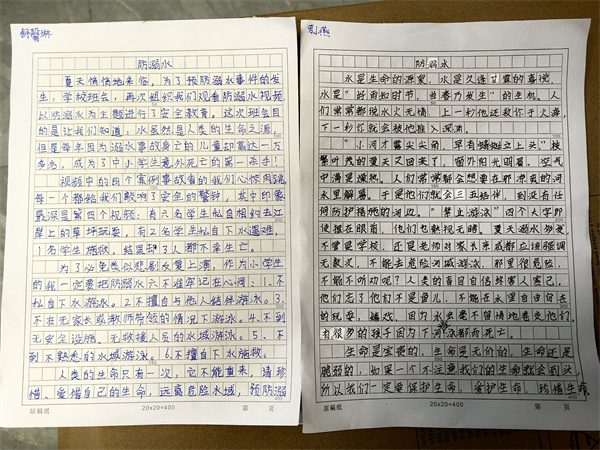 舒馨琳
防溺水
夏天悄悄地来临,为了预防溺水事件的发
生,学校班会,再次组织我们观看防溺水视频,
以防溺水为主题进行了安全教育。这次班会目
的是让我们知道,水虽然是人类的生命之源,
但是每年因为溺水事故身亡的儿童却高达一万
多名,成为了中小学生意外死亡的第一杀手!
视频中的四个案例事故看的我们心惊肉跳,
每一个都给我们敲响了安全的警钟,其中印象
最深是第四个视频:有六名学生私自相约去江
岸上的草坪玩耍,有2名学生私自下水遇难,
1名学生施救,结果3人都不幸生亡。
为了必免类似悲剧反复上演,作为小学生
的我一定要把防溺水六不准牢记在心间:1.不
私自下水游泳。2.不擅自与他人结伴游泳。3.
不在无家长或教师带领的情况下游泳。4.不到
无安全设施、无救援人员的水域游泳。5、不
到不熟悉的水域游泳。6.不擅自下水施救。
人类的生命只有一次,它不能重来,请珍
惜、爱惜自己的生命,远离危险水域,预防溺
原稿纸
20x20=400
第 页
400
防溺水
水是生命的源泉,水是久逢甘露的喜悦
水是"好雨知时节,当春乃发生"的生机。人
们常常都说水火无情,上一秒他还救你于火海,
下一秒你就会被他推入深渊。
"小河才露尖尖角,早有蜻蜓立上头"校
警中我的夏天又回来了,窗外阳光明媚,空气
中满是燥热。人们常常都会想要在那凉爽的河
水里解暑。于是他们就会三五结伴,到没有任
何防护措施的河边。"禁止游泳"四个大字即
使摆在眼前,他们也敢视无睹。夏天溺水多发
不管是学校,还是老师的家长亲戚都应该强调
无数次,不能去危险河域游泳,那里很危险,
不能不听劝呢?人类的盲目自信终害人害己。
他们忘了他们不是鱼儿,不能在水里自由自在
的玩耍、嬉戏,因为水会毫不留情地卷走他们,
有很多的孩子因为下河游泳都而死亡。
生命是宝贵的,生命是无价的,生命还是
脆弱的,如果一个不注意我们的生命就会到头,
所以我们一定要保护生命,爱护生命,珍惜生命。
原稿纸
20x20=400
第 页
400